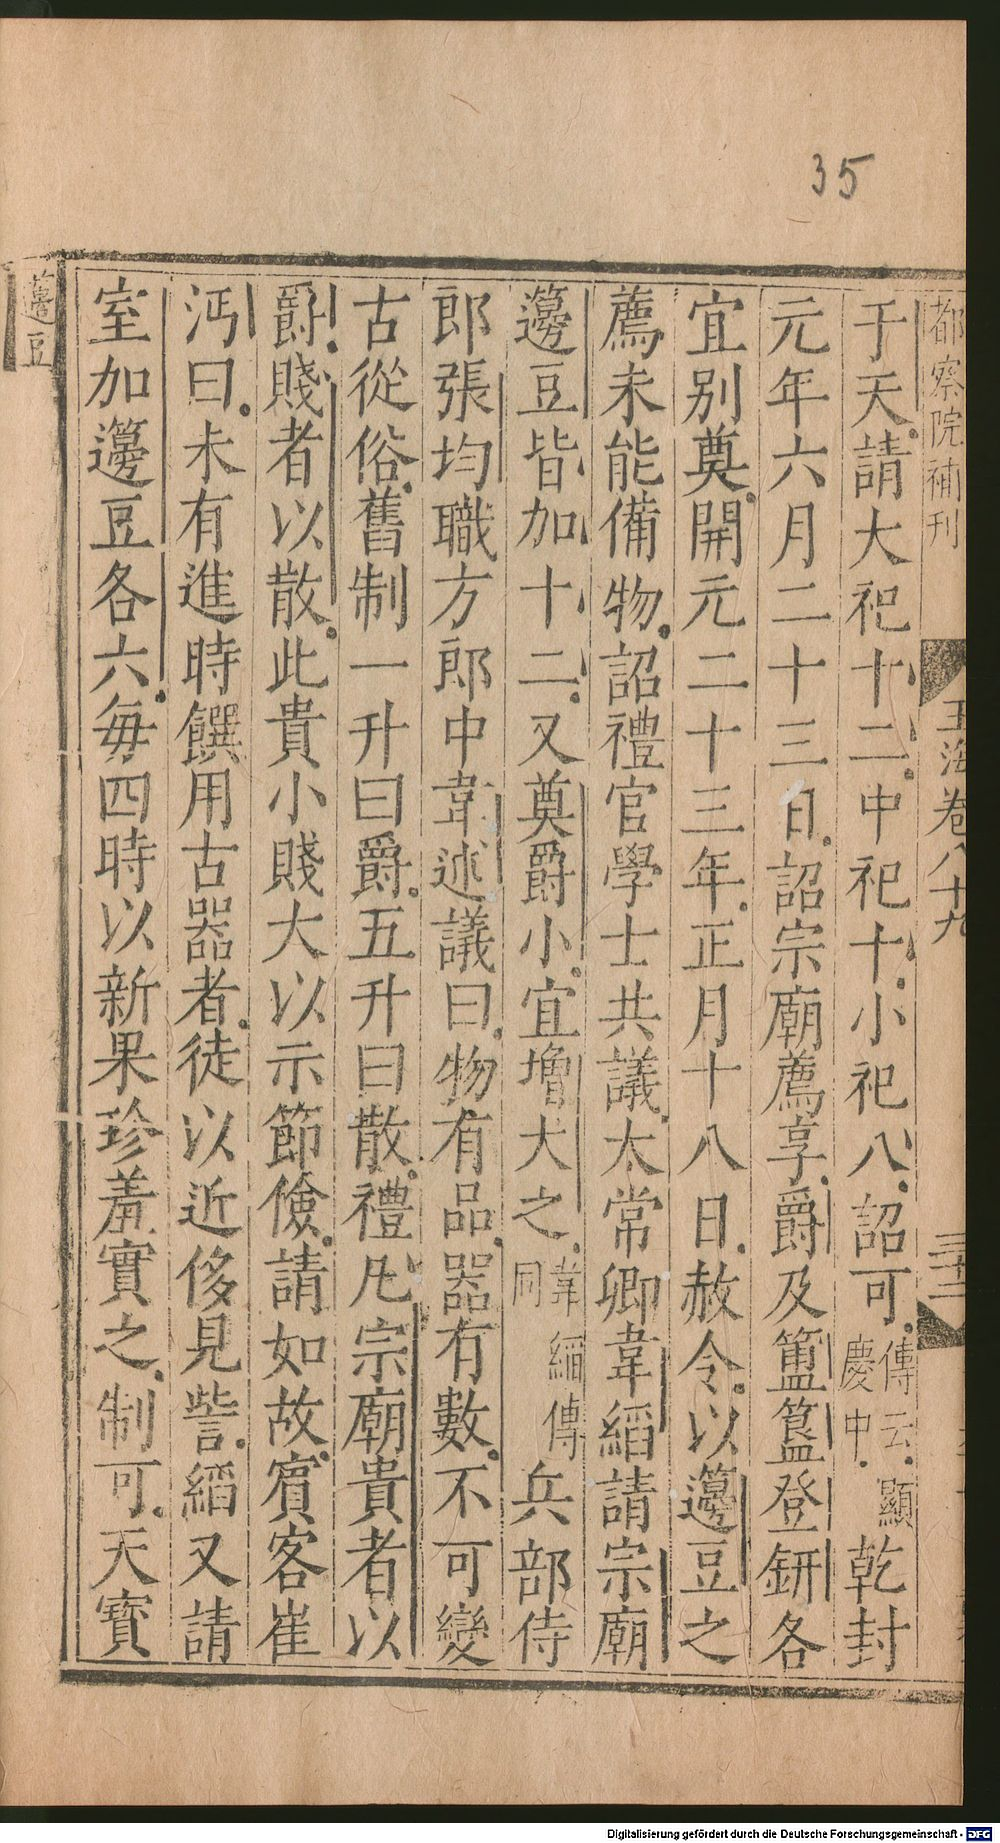 35
都察院補刊
玉海卷八十九
于天請大祀十二中祀十小祀八詔可傳云顯慶中乾封
元年六月二十三日詔宗廟薦享爵及簠簋登鈃各
宜別奠開元二十三年正月十八日赦令以籩豆之
薦未能備物詔禮官學士共議太常卿韋縚請宗廟
籩豆皆加十二又奠爵小宜增大之韋縚傳同兵部侍
郎張均職方郎中韋述議曰物有品器有數不可變
古從俗舊制一升曰爵五升曰散禮凡宗廟貴者以
爵賤者以散此貴小賤大以示節儉請如故賓客崔
沔曰未有進時饌用古器者徒以近侈見訾縚又請
室加籩豆各六每四時以新果珍羞實之制可天寶
籩豆
Digitalisierung gefördert durch die Deutsche Forschungsgemeinschaft - DFG